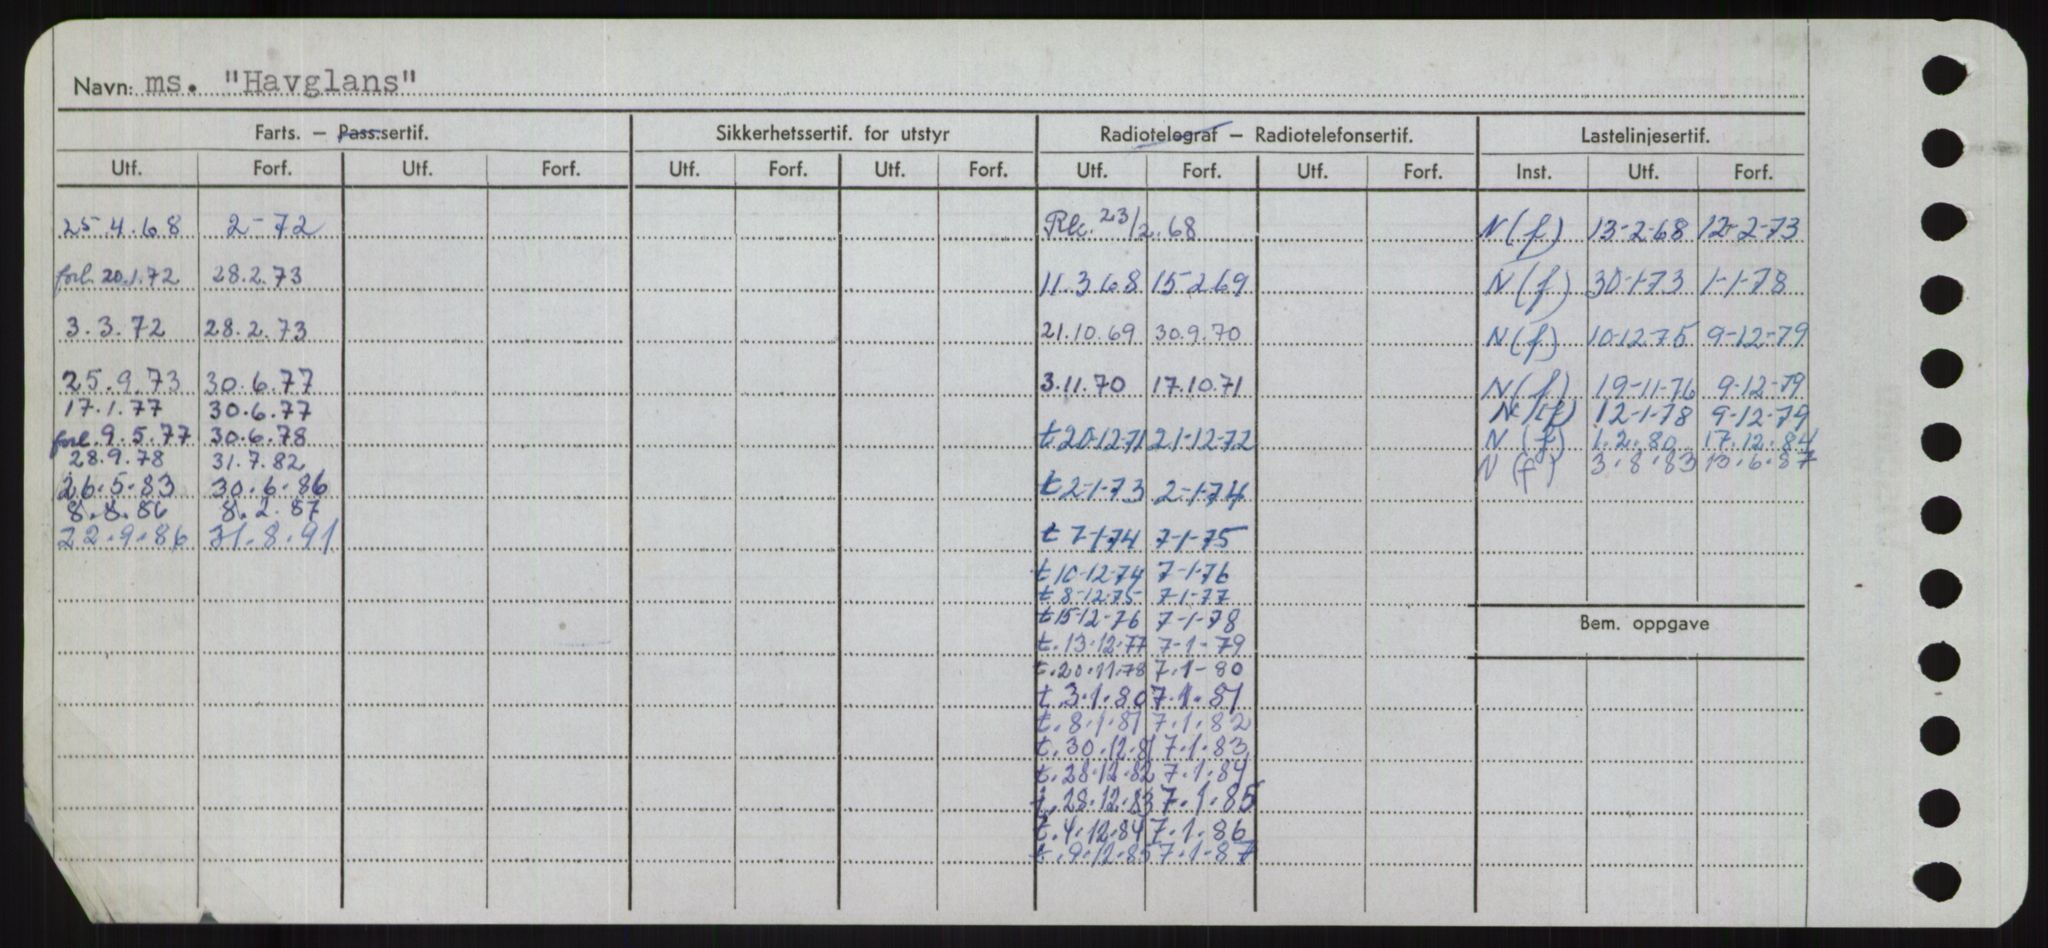 Navn: ms. "Havglans"
Farts. — Pass.sertif. Sikkerhetssertif. for utstyr Radiotelegraf — Radiotelefonsertif. Lastelinjesertif.
Utf. Forf. Utf. Forf. Utf. Forf. Utf. Forf. Utf. Forf. Utf. Forf. Inst. Utf. Forf.
25.4.68 2-72 23/2.68 N(f) 13-2-68 12-2-73
forl. 20.1.72 28.2.73 11.3.68 15-2-69 N(f) 30-1-73 1-1-78
3.3.72 28.2.73 21.10.69 30.9.70 N(f) 10-12-75 9-12-79
25.9.73 30.6.77 3.11.70 17.10.71 N(f) 19-11-76 9-12-79
17.1.77 30.6.77 N(f) 12-1-78 9-12-79
forl. 9.5.77 30.6.78 t.20-12-71 21-12-72 N(f) 1.2.80 17.12.84
28.9.78 31.7.82 N(f) 3.8.83 13.6.87
26.5.83 30.6.86 t 2-1-73 2-1-74
8.8.86 8.2.87
22.9.86 31.8.91 t 7-1-74 7-1-75
t 10-12-74 7-1-76
t 8-12-75 7-1-77
t 15-12-76 7-1-78
t.13.12.77 7-1-79
t.20.11.78 7.1-80
t.3.1.80 7.1.81
t.8.1.81 7.1.82
t.30.12.81 7.1.83
t.28.12.82 7.1.84
t.28.12.83 7.1.85
t.4.12.84 7.1.86
t.9.12.85 7.1.87
Bem. oppgave